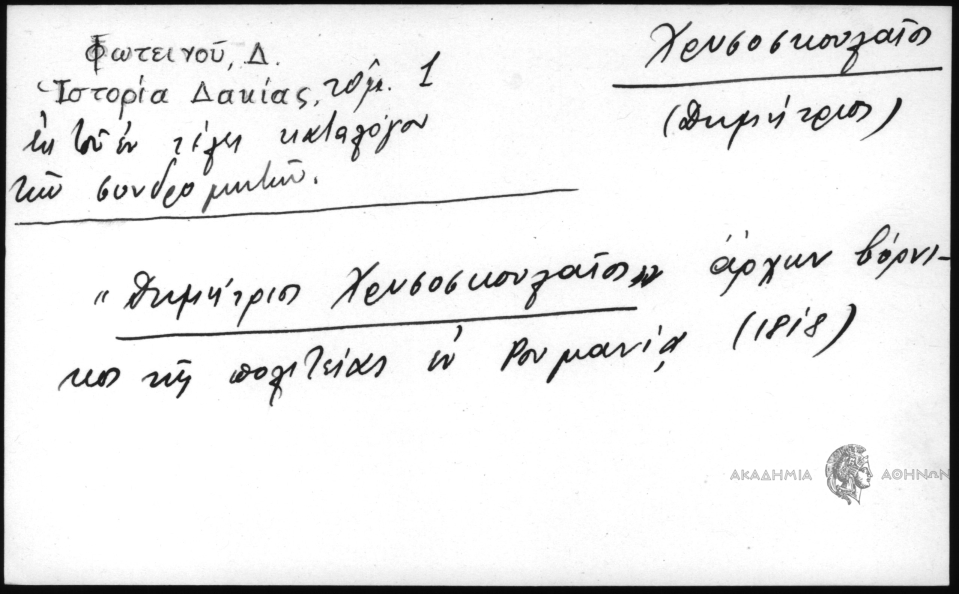 Φωτεινοῦ, Δ.
Ἱστορία Δακίας, τόμ. 1
ἐκ τοῦ ἐν τέλει καταλόγου
τῶν συνδρομητῶν.
Χρυσοσκουλαῖος
(Δημήτριος)
"Δημήτριος Χρυσοσκουλαῖος" ἄρχων βόρνι-
κος τῆς πολιτείας ἐν Ρουμανίᾳ (1818)
ΑΚΑΔΗΜΙΑ ΑΘΗΝΩΝ